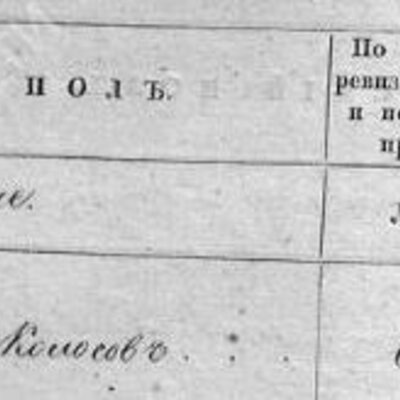 ПОЛЪ.
По
ревиз
и по
пр
Колосовъ